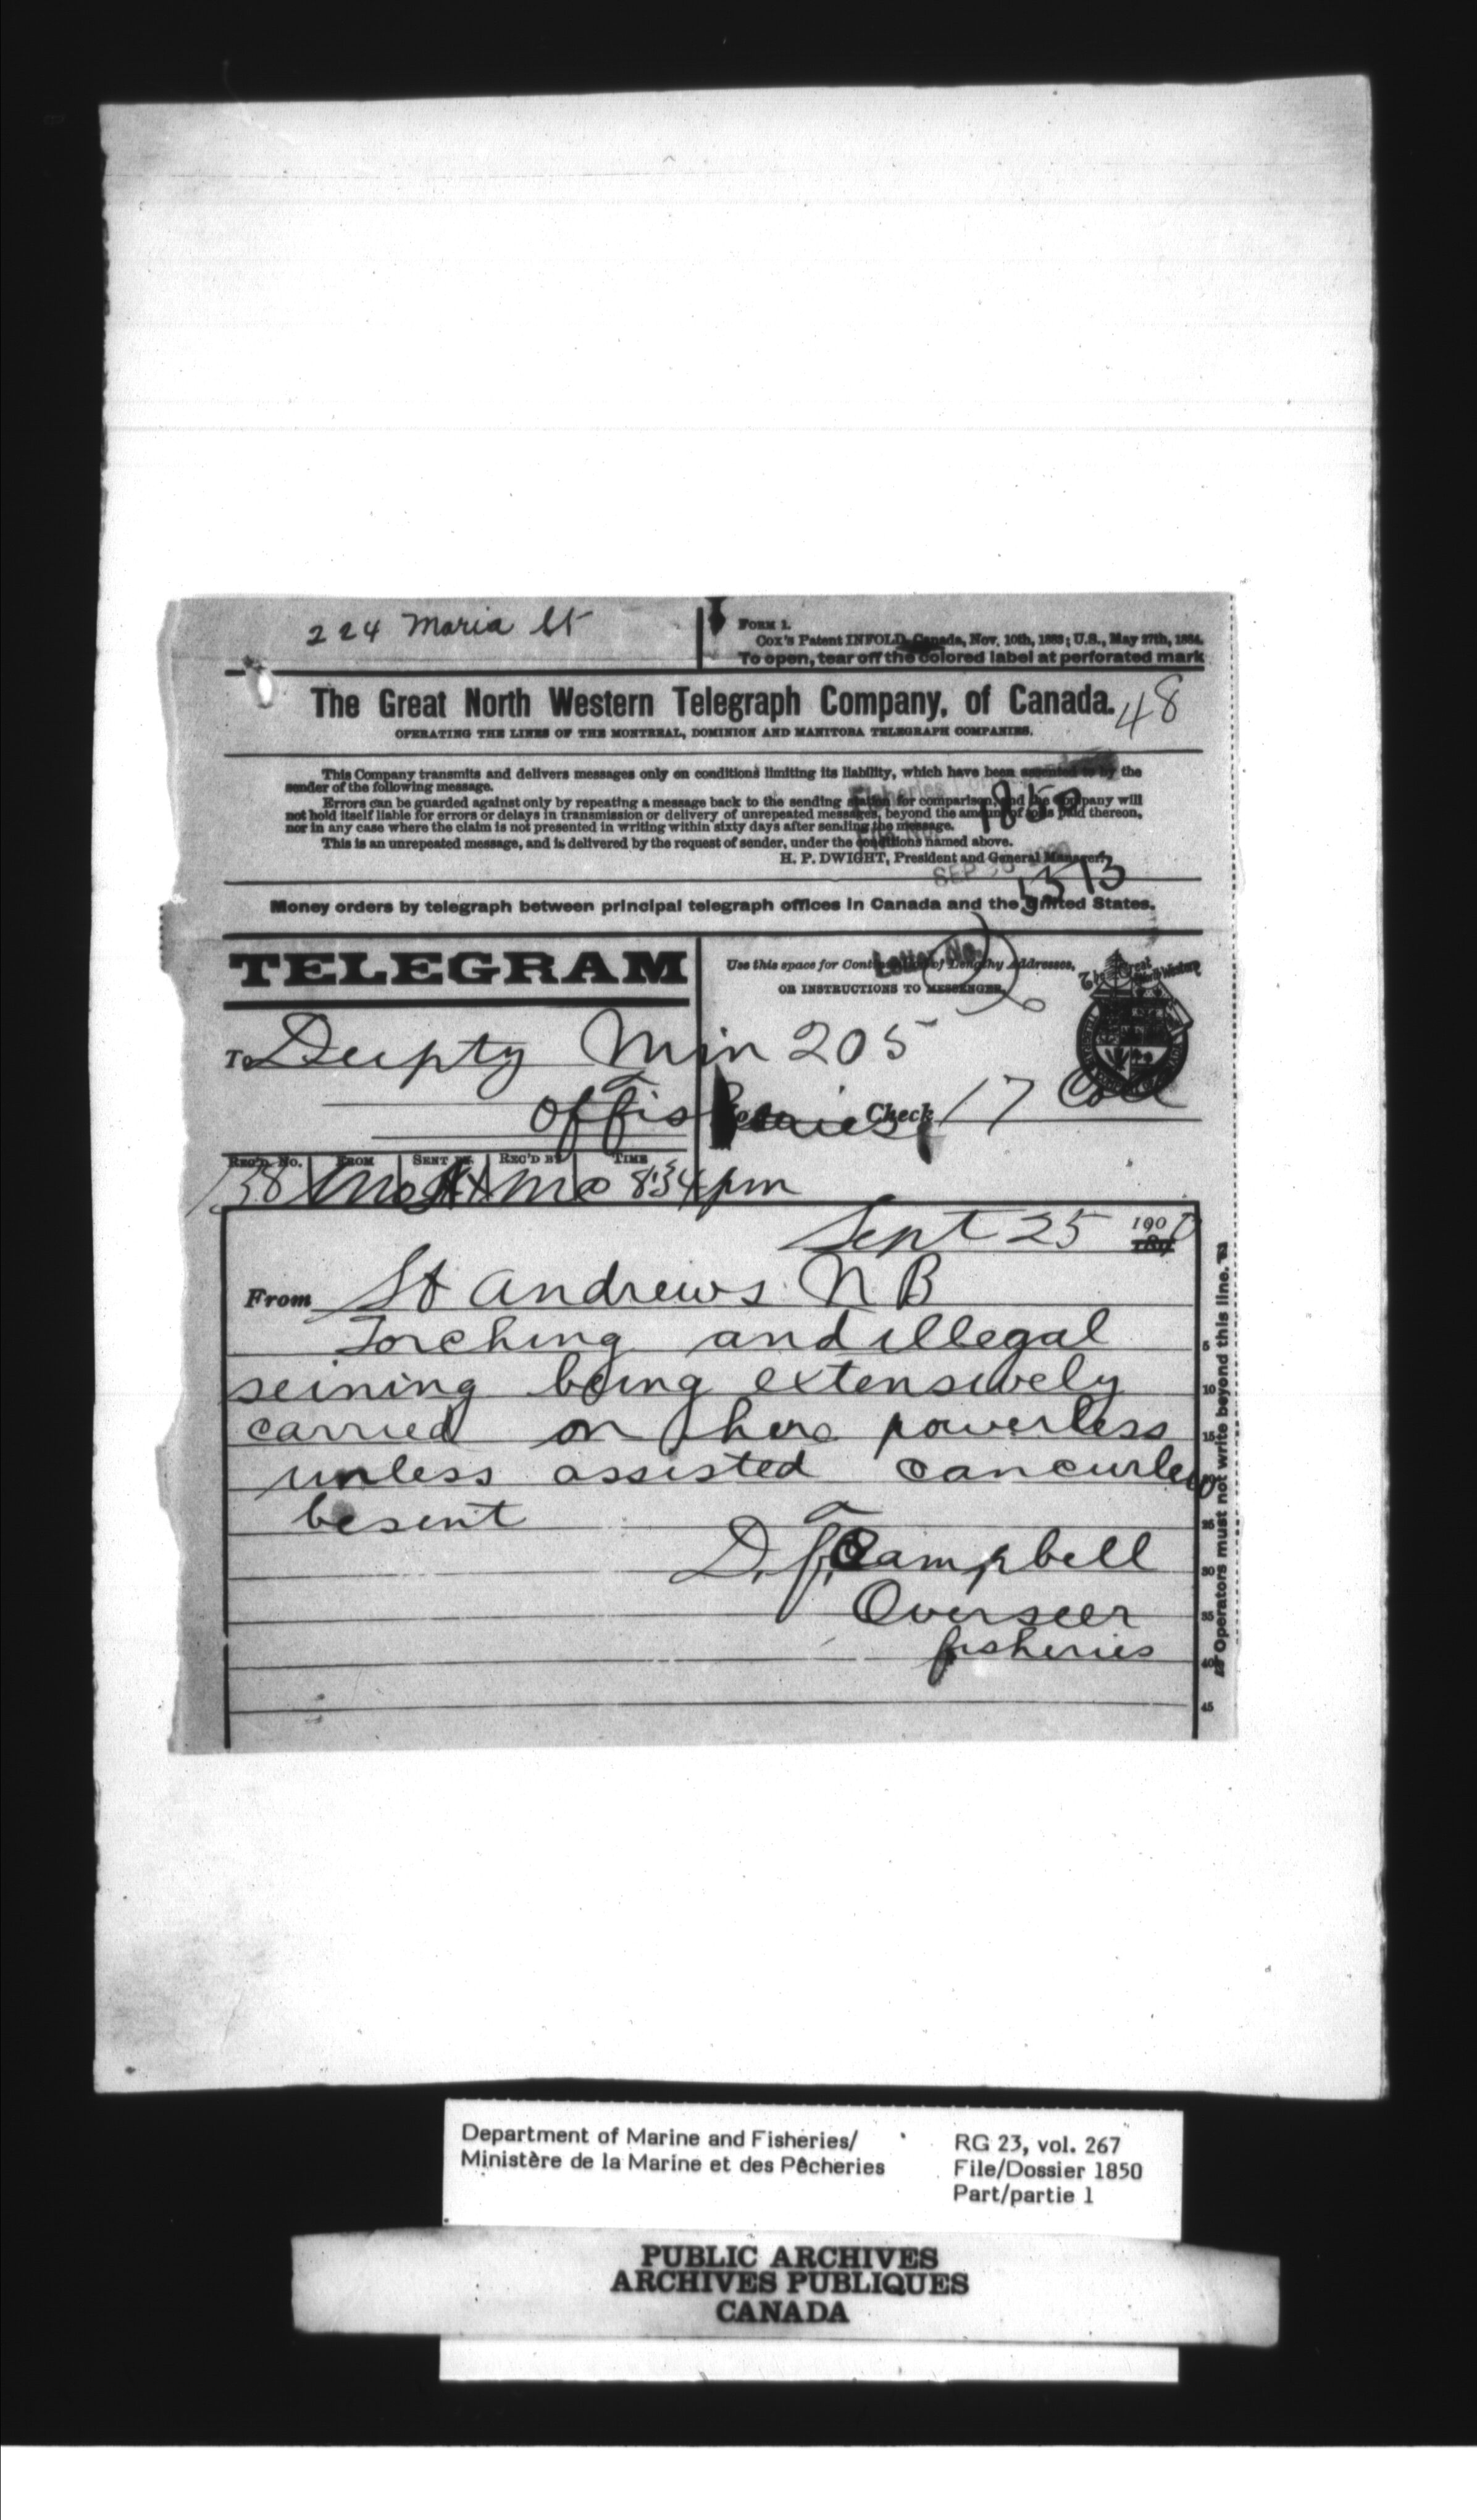 224 Maria St
FORM 1.
Cox's Patent INFOLD, Canada, Nov. 10th, 1883; U.S., May 27th, 1884.
To open, tear off the colored label at perforated mark
The Great North Western Telegraph Company, of Canada.
48
OPERATING THE LINES OF THE MONTREAL, DOMINION AND MANITOBA TELEGRAPH COMPANIES.
This Company transmits and delivers messages only on conditions limiting its liability, which have been assented to by the
sender of the following message.
Errors can be guarded against only by repeating a message back to the sending station for comparison, and the Company will
not hold itself liable for errors or delays in transmission or delivery of unrepeated messages, beyond the amount of tolls paid thereon,
nor in any case where the claim is not presented in writing within sixty days after sending the message.
This is an unrepeated message, and is delivered by the request of sender, under the conditions named above.
H. P. DWIGHT, President and General Manager.
Fisheries
1850
SEP
1513
Money orders by telegraph between principal telegraph offices in Canada and the United States.
TELEGRAM
Use this space for Continuation of Lengthy Addresses,
OR INSTRUCTIONS TO MESSENGER.
Letter No.
To Deupty Min 205
of fisheries
Check 17 Coll
REC'D. No. FROM SENT BY. REC'D BY TIME
138 Mo Mc 8:34 pm
Sept 25 1900
From St Andrews N B
Torching and illegal
seining being extensively
carried on here powerless
unless assisted can curlew
be sent
D. F. Campbell
Overseer
fisheries
5
10
15
20
25
30
35
40
45
Operators must not write beyond this line.
Department of Marine and Fisheries/
Ministère de la Marine et des Pêcheries
RG 23, vol. 267
File/Dossier 1850
Part/partie 1
PUBLIC ARCHIVES
ARCHIVES PUBLIQUES
CANADA